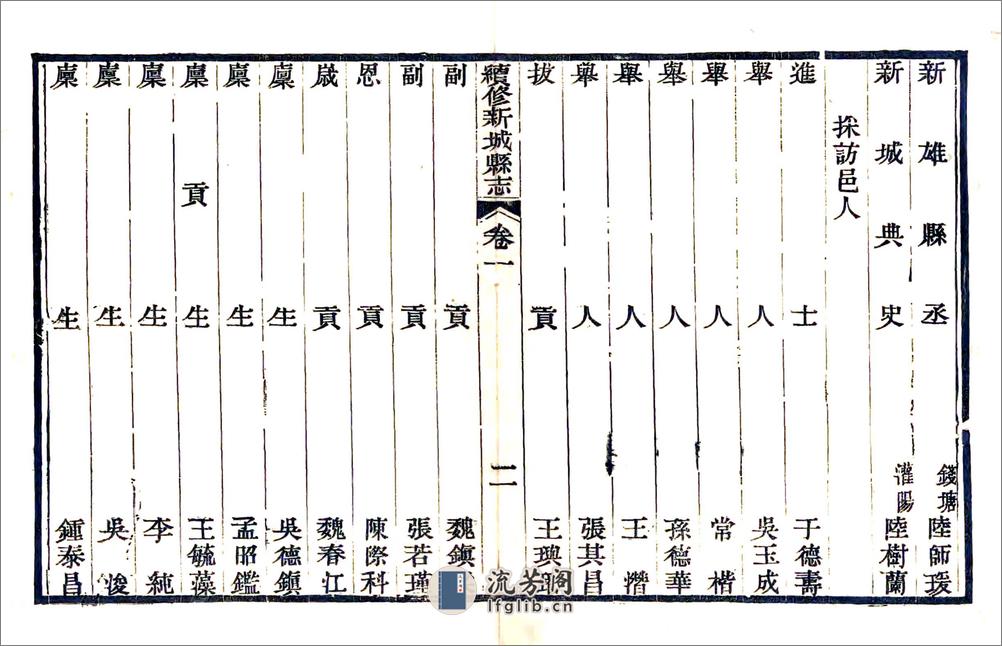 新雄縣丞 錢塘 陸師瑗
新城典史 灌陽 陸樹蘭
採訪邑人
進士 于德壽
舉人 吳玉成
舉人 常楷
舉人 孫德華
舉人 王潛
舉人 張其昌
拔貢 王
續修新城縣志 卷一 二
副貢 魏鎭
副貢 張若瑾
恩貢 陳際科
歲貢 魏春江
廩生 吳德鎭
廩生 孟昭鑑
廩貢生 王毓藻
廩生 李純
廩生 吳浚
廩生 鍾泰昌
流芳阁
lfglib.cn